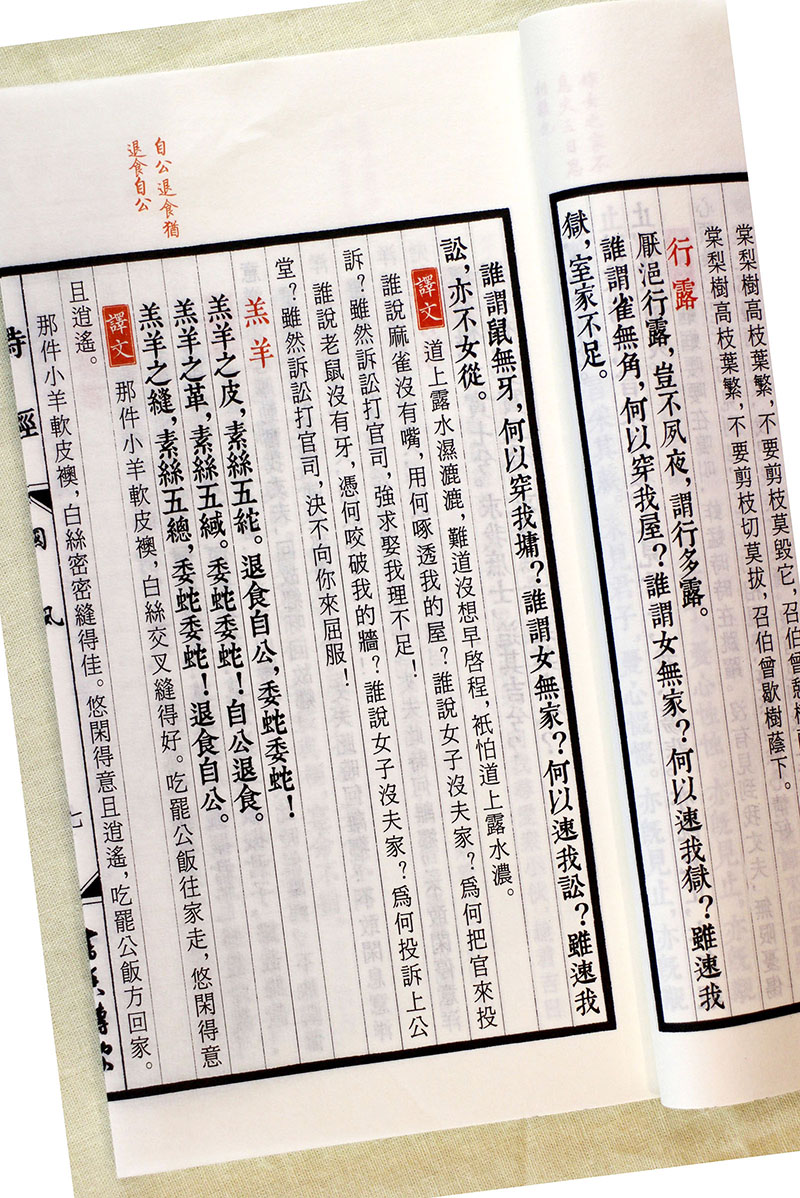 棠梨樹高枝葉繁，不要剪枝莫毀它，召伯曾憩樹
棠梨樹高枝葉繁，不要剪枝切莫拔，召伯曾歇樹蔭下。
行露
厭浥行露，豈不夙夜，謂行多露。
誰謂雀無角，何以穿我屋？誰謂女無家？何以速我獄？雖速我
獄，室家不足。
自公退食猶
退食自公
誰謂鼠無牙，何以穿我墉？誰謂女無家？何以速我訟？雖速我
訟，亦不女從。
譯文 道上露水濕漉漉，難道沒想早啓程，衹怕道上露水濃。
誰說麻雀沒有嘴，用何啄透我的屋？誰說女子沒夫家？爲何把官來投
訴？雖然訴訟打官司，強求娶我理不足！
誰說老鼠沒有牙，憑何咬破我的牆？誰說女子沒夫家？爲何投訴上公
堂？雖然訴訟打官司，決不向你來屈服！
羔羊
羔羊之皮，素絲五紽。退食自公，委蛇委蛇！
羔羊之革，素絲五緎。委蛇委蛇！自公退食。
羔羊之縫，素絲五總，委蛇委蛇！退食自公。
譯文 那件小羊軟皮襖，白絲交叉縫得好。吃罷公飯往家走，悠閑得意
且逍遙。
那件小羊軟皮襖，白絲密密縫得佳。悠閑得意且逍遙，吃罷公飯方回家。
詩經
國風
七